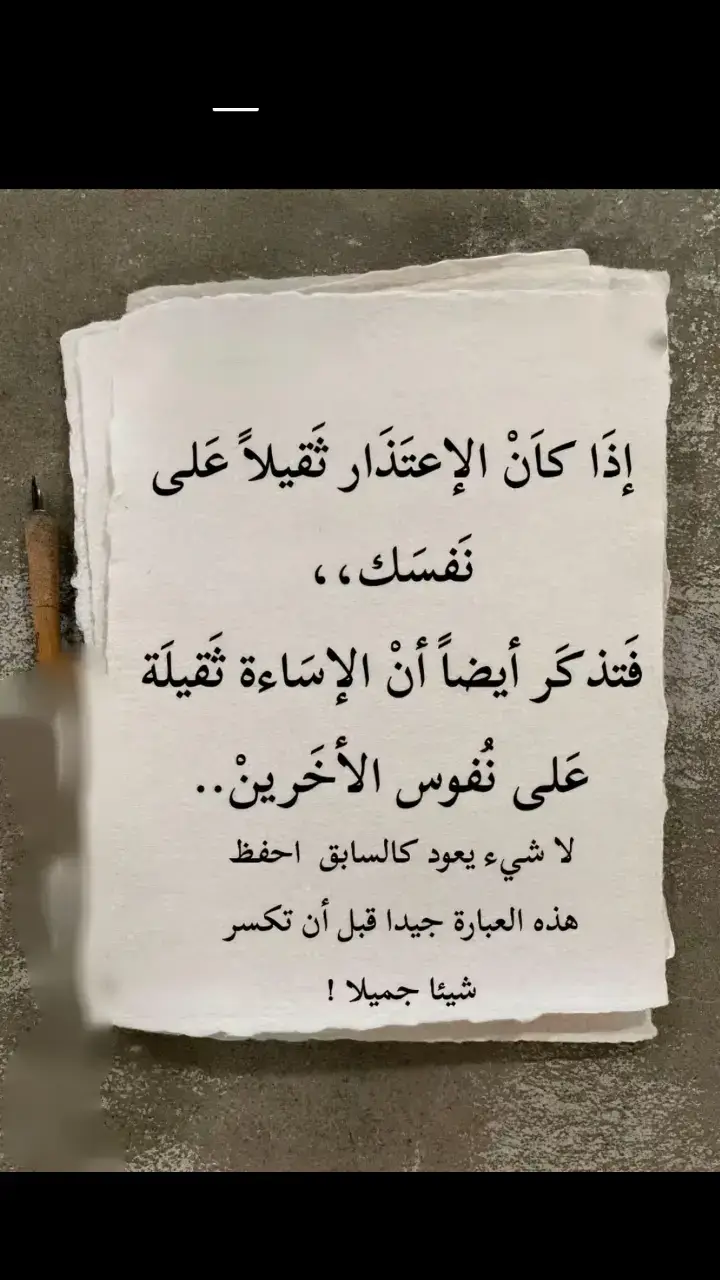 إذَا كاَنْ الإعتَذَار ثَقيلاً عَلى
نَفسَك،،
فَتذكَر أيضاً أنْ الإسَاءة ثَقيلَة
عَلى نُفوس الأخَرينْ..
لا شيء يعود كالسابق احفظ
هذه العبارة جيدا قبل أن تكسر
شيئا جميلا !